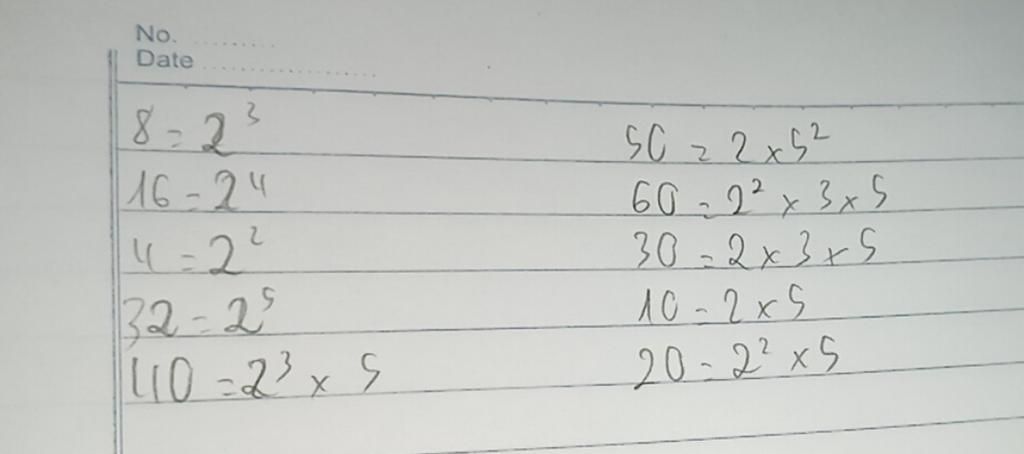 No. ..........
Date ....................
8 = 2³
16 = 2⁴
4 = 2²
32 = 2⁵
40 = 2³ x 5
50 = 2 x 5²
60 = 2² x 3 x 5
30 = 2 x 3 x 5
10 = 2 x 5
20 = 2² x 5